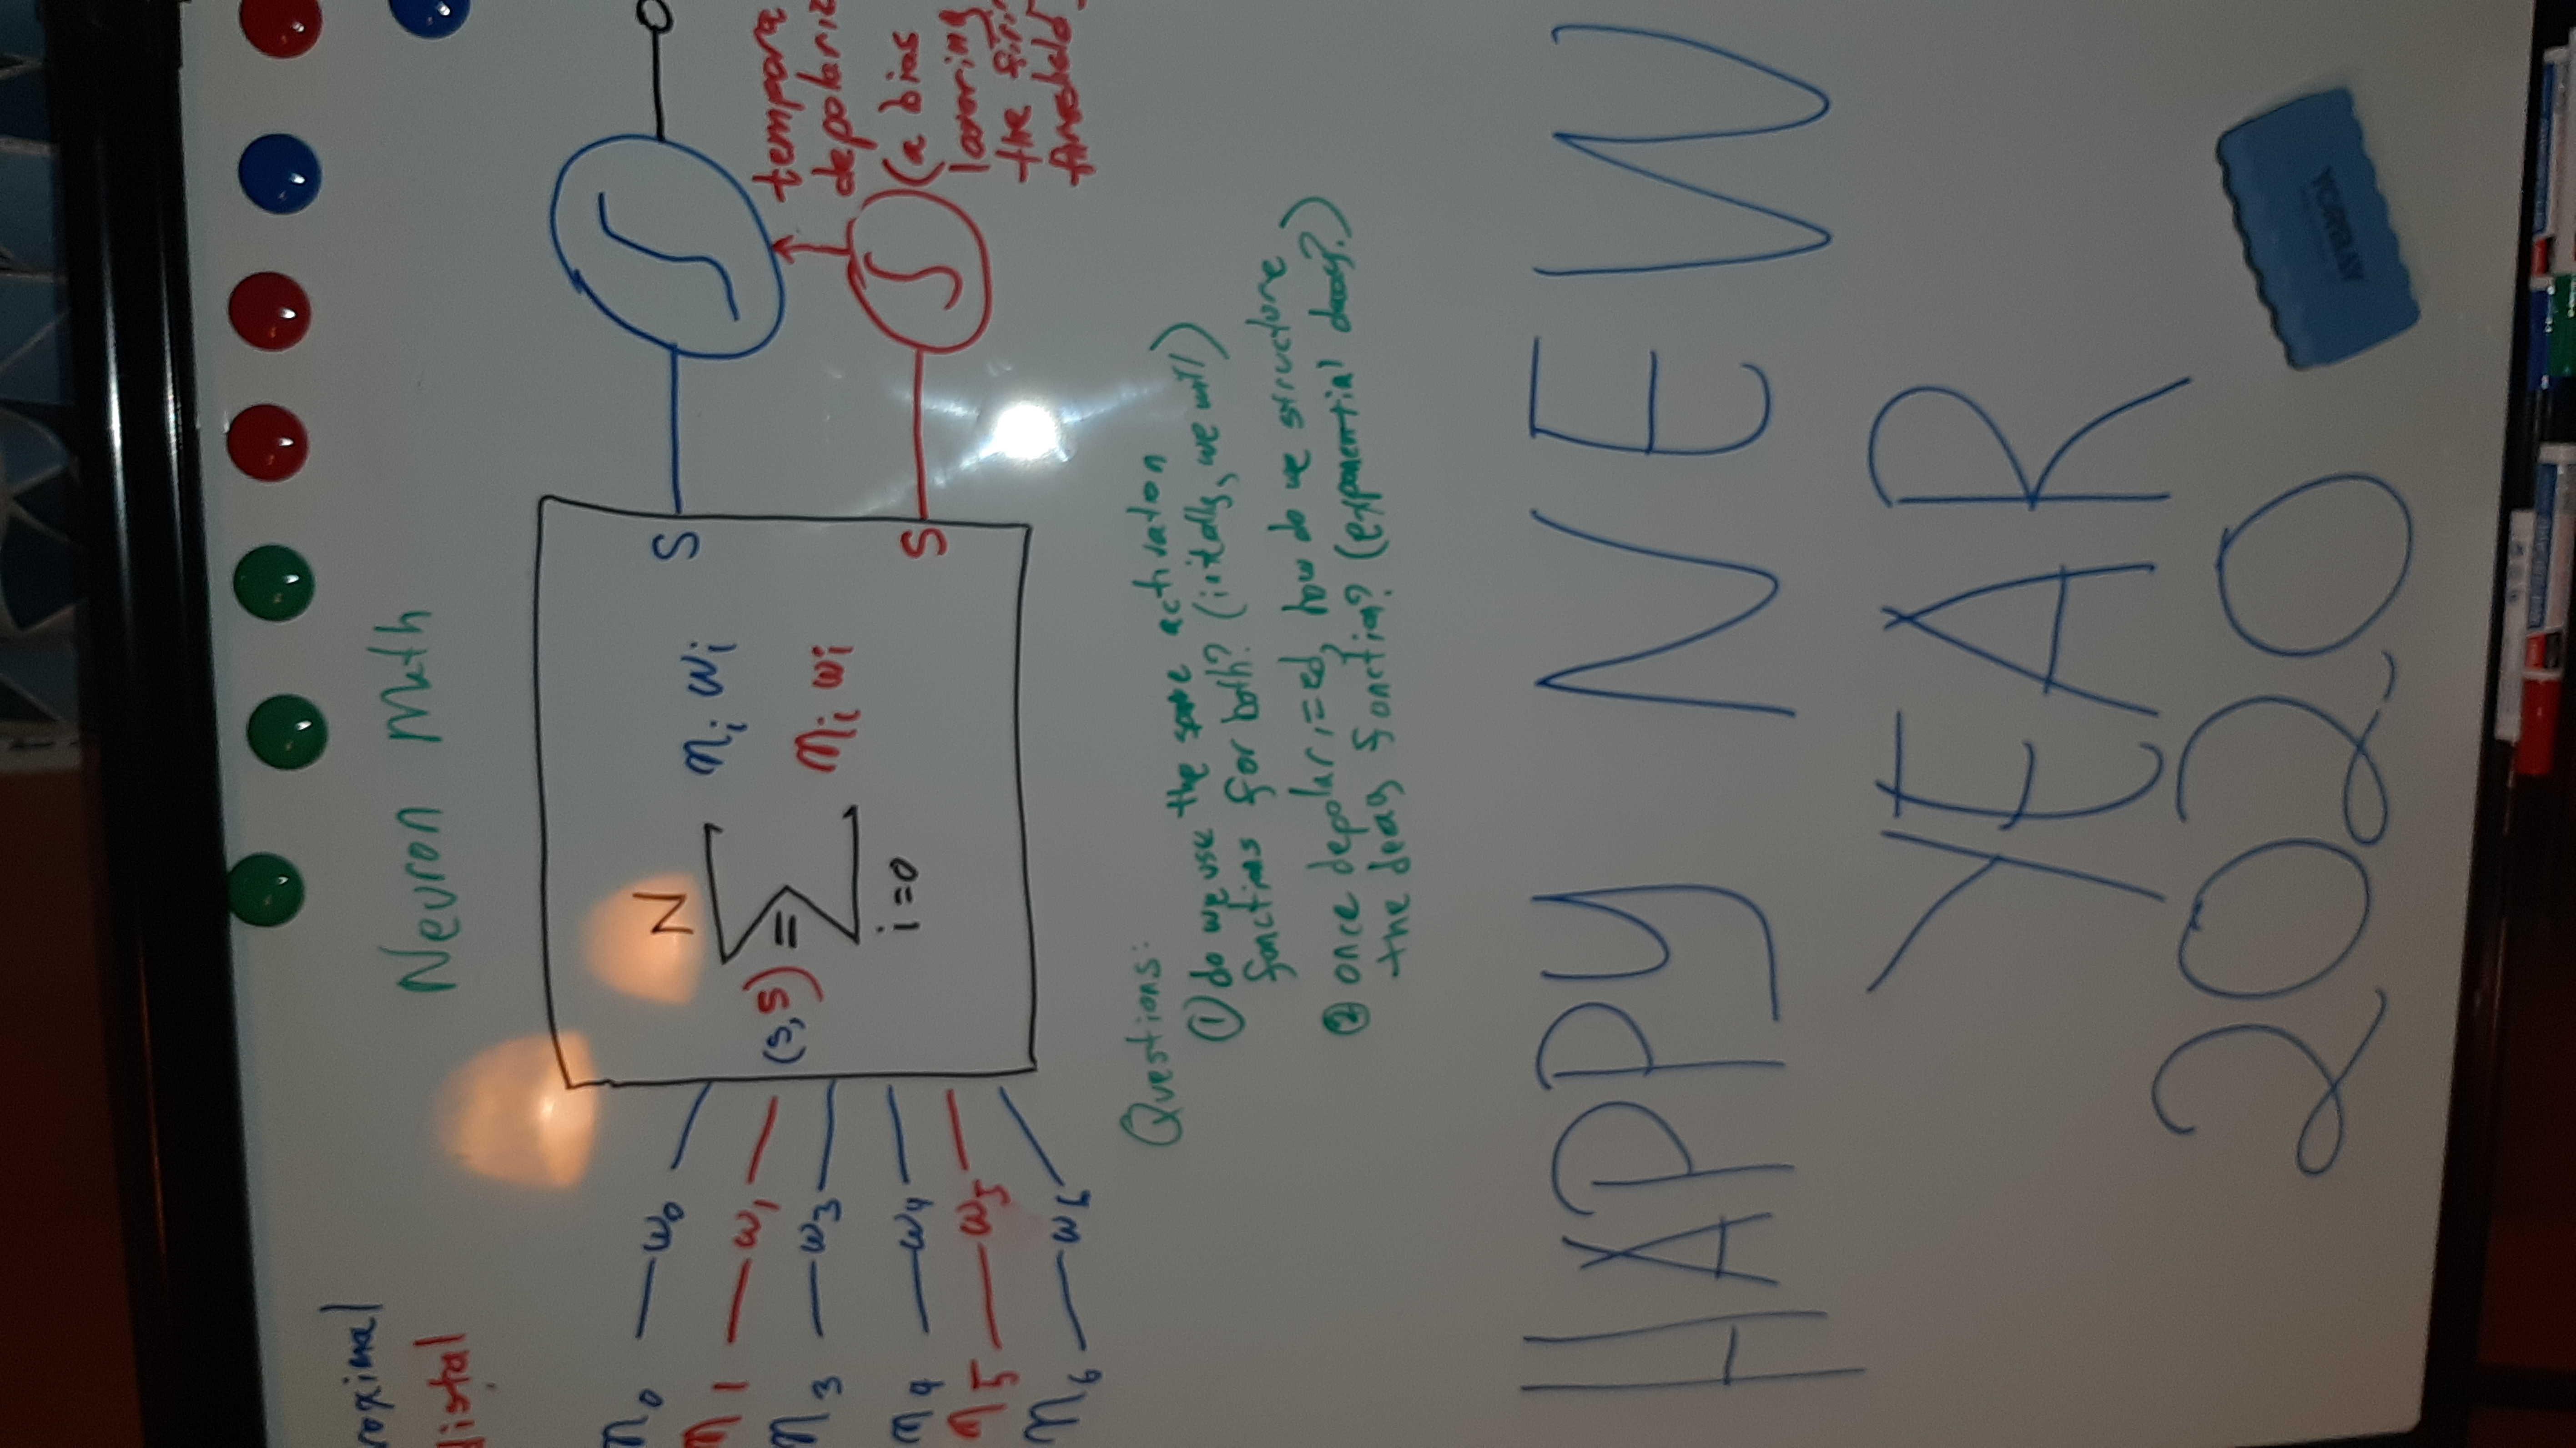 roximal
distal
Neuron Math
n0 w0
n1 w1
n3 w3
n4 w4
n5 w5
n6 w6
N
(s,s) = Σ ni wi
ni wi
i=0
S
S
tempora
depolariz
(a bias
lowering
the firi
threshold
Questions:
① do we use the same activation
functions for both? (initally, we will)
② once depolarized, how do we structure
the decay function? (exponential decay?)
HAPPY NEW
YEAR
2020
YORBAY